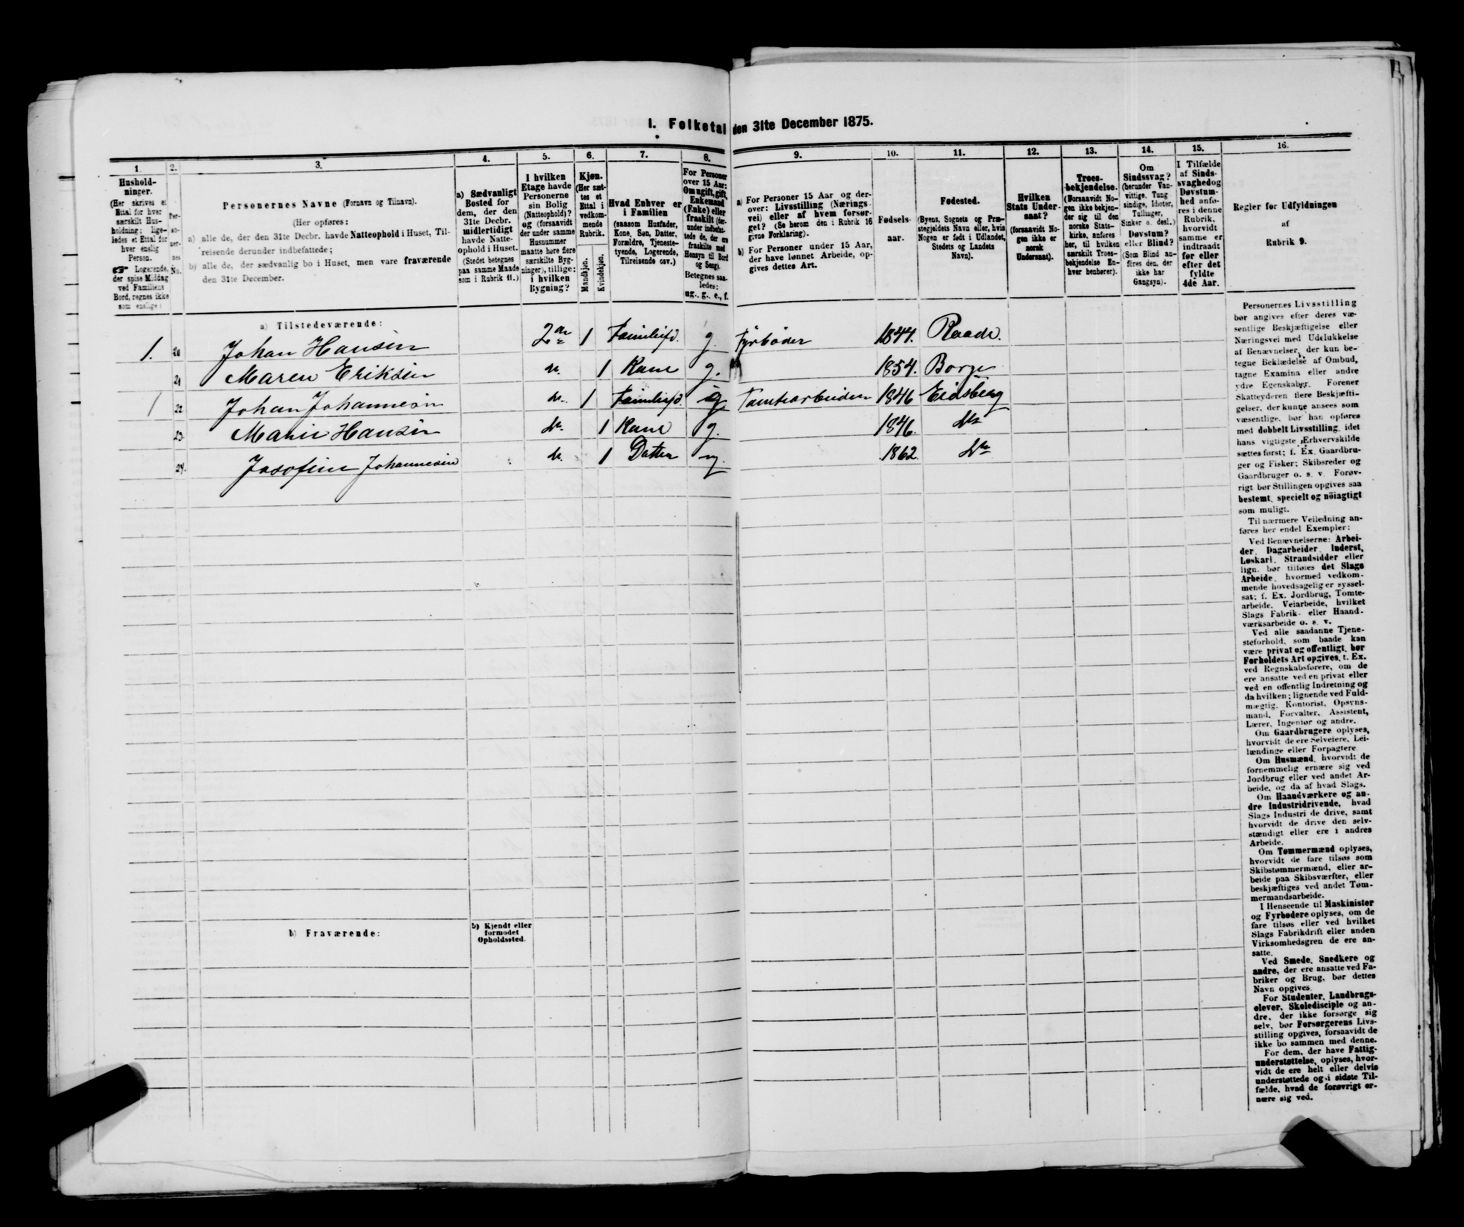 I. Folketal den 31te December 1875.
1. 2. 3. 4. 5. 6. 7. 8. 9. 10. 11. 12. 13. 14. 15. 16.
Hushold-
ninger.
(Her skrives et
Ettal for hver
særskilt Hus-
holdning; lige-
ledes et Ettal for
hver enslig
Person.
☞ Logerende,
der spise Middag
ved Familiens
Bord, regnes ikke
som enslige.)
Per-
soner-
nes
No.
Personernes Navne (Fornavn og Tilnavn).
(Her opføres:
a) alle de, der den 31te Decbr. havde Natteophold i Huset, Til-
reisende derunder indbefattede;
b) alle de, der sædvanlig bo i Huset, men vare fraværende
den 31te December.
a) Sædvanligt
Bosted for
dem, der den
31te Decbr.
midlertidigt
havde Natte-
ophold i Huset.
(Stedet betegnes
paa samme Maade
som i Rubrik 11.)
I hvilken
Etage havde
Personerne
sin Bolig
(Natteophold)?
og (forsaavidt
der under samme
Husnummer
maatte høre flere
særskilte Byg-
ninger), tillige:
i hvilken
Bygning?
Kjøn.
(Her sæt-
tes et
Ettal i
vedkom-
mende
Rubrik.
Mandkjøn.
Kvindekjøn.
Hvad Enhver er
i Familien
(saasom Husfader,
Kone, Søn, Datter,
Forældre, Tjeneste-
tyende, Logerende,
Tilreisende osv.)
For Personer
over 15 Aar:
Om ugift, gift,
Enkemand
(Enke) eller
fraskilt (her-
under indbefat-
tede de, der ere
fraskilte med
Hensyn til Bord
og Seng).
Betegnes saa-
ledes:
ug., g., e., f.
a) For Personer 15 Aar og der-
over: Livsstilling (Nærings-
vei) eller af hvem forsør-
get? (Se herom den i Rubrik 16
givne Forklaring).
b) For Personer under 15 Aar,
der have lønnet Arbeide, op-
gives dettes Art.
Fødsels-
aar.
Fødested.
(Byens, Sognets og Præ-
stegjeldets Navn eller, hvis
Nogen er født i Udlandet,
Stedets og Landets
Navn).
Hvilken
Stats Under-
saat?
(forsaavidt No-
gen ikke er
norsk
Undersaat).
Troes-
bekjendelse.
(Forsaavidt No-
gen ikke bekjen-
der sig til den
norske Stats-
kirke, anføres
her, til hvilken
særskilt Troes-
bekjendelse En-
hver henhører).
Om
Sindssvag?
(herunder Van-
vittige, Tung
sindige, Idioter,
Tullinger,
Sinker o. desl.)
Døvstum?
eller Blind?
(Som Blind an-
føres den, der
ikke har
Gangsyn).
I Tilfælde
af Sinds-
svaghed og
Døvstum-
hed anfø-
res i denne
Rubrik,
hvorvidt
samme er
indtraadt
før eller
efter det
fyldte
4de Aar.
Regler for Udfyldningen
af
Rubrik 9.
a) Tilstedeværende:
1. 20 Johan Hansen 2 1 Familiefd. g. Fyrbøder 1844. Raade.
21 Maren Eriksen 1 Kone g. 1854. Borge
1 22 Johan Johannesen 1 Familiefd. g Tomtearbeider 1846 Eidsberg
23. Marie Hansen 1 Kone g. 1846. Do
24. Josefine Johannesen 1 Datter ug 1862. Do
b) Fraværende:
b) Kjendt eller
formodet
Opholdssted.
Personernes Livsstilling
bør angives efter deres væ-
sentlige Beskjæftigelse eller
Næringsvei med Udelukkelse
af Benævnelser, der kun be-
tegne Beklædelse af Ombud,
tagne Examina eller andre
ydre Egenskaber. Forener
Skatteyderen flere Beskjæfti-
gelser, der kunne ansees som
væsentlige, bør han opføres
med dobbelt Livsstilling, idet
hans vigtigste Erhvervskilde
sættes først; f. Ex. Gaardbru-
ger og Fisker; Skibsreder og
Gaardbruger o. s. v. Forøv-
rigt bør Stillingen opgives saa
bestemt, specielt og nöiagtigt
som muligt.
Til nærmere Veiledning an-
føres her endel Exempler:
Ved Benævnelserne: Arbei-
der, Dagarbeider, Inderst,
Løskarl, Strandsidder eller
lign. bør tilføies det Slags
Arbeide, hvormed vedkom-
mende hovedsagelig er syssel-
sat; f. Ex. Jordbrug, Tomte-
arbeide, Veiarbeide, hvilket
Slags Fabrik- eller Haand-
værksarbeide o. s. v.
Ved alle saadanne Tjene-
steforhold, som baade kan
være privat og offentligt, bør
Forholdets Art opgives, t. Ex.
ved Regnskabsførere, om de
ere ansatte ved en privat eller
ved en offentlig Indretning og
da hvilken; lignende ved Fuld-
mægtig, Kontorist, Opsyns-
mand, Forvalter, Assistent,
Lærer, Ingeniør og andre.
Om Gaardbrugere oplyses,
hvorvidt de ere Selveiere, Lei-
lændinge eller Forpagtere.
Om Husmænd, hvorvidt de
fornemmelig ernære sig ved
Jordbrug eller ved andet Ar-
beide, og da af hvad Slags.
Om Haandværkere og an-
dre Industridrivende, hvad
Slags Industri de drive, samt
hvorvidt de drive den selv-
stændigt eller ere i andres
Arbeide.
Om Tømmermænd oplyses,
hvorvidt de fare tilsøs som
Skibstømmermænd, eller ar-
beide paa Skibsværfter, eller
beskjæftiges ved andet Tøm-
mermandsarbeide.
I Henseende til Maskinister
og Fyrbødere oplyses, om de
fare tilsøs eller ved hvilket
Slags Fabrikdrift eller anden
Virksomhedsgren de ere an-
satte.
Ved Smede, Snedkere og
andre, der ere ansatte ved Fa-
briker og Brug, bør dettes
Navn opgives.
For Studenter, Landbrugs-
elever, Skoledisciple og an-
dre, der ikke forsørge sig
selv, bør Forsørgerens Livs-
stilling opgives, forsaavidt de
ikke bo sammen med denne.
For dem, der have Fattig-
understøttelse, oplyses, hvor-
vidt de ere helt eller delvis
understøttede og i sidste Til-
fælde, hvad de forøvrigt er-
nære sig ved.